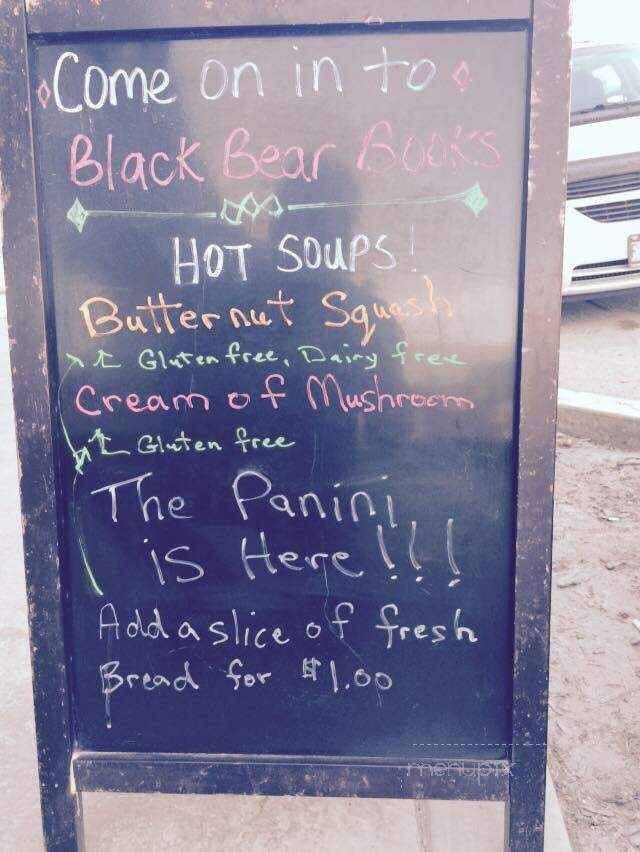 Come on in to
Black Bear Books
HOT SOUPS!
Butternut Squash
Gluten free, Dairy free
Cream of Mushroom
Gluten free
The Panini
is Here!!!
Add a slice of fresh
Bread for $1.00
menupix